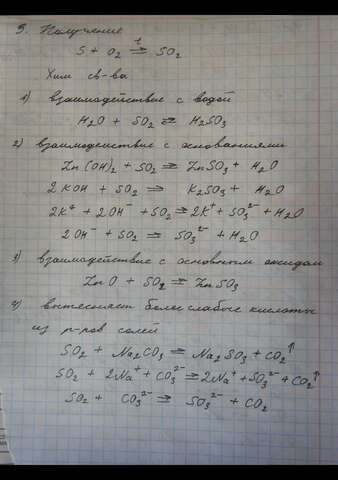 5. Получение
S + O₂ =ᵗ SO₂
Хим св-ва
1) взаимодействие с водой
H₂O + SO₂ ⇌ H₂SO₃
2) взаимодействие с основаниями
Zn(OH)₂ + SO₂ ⇌ ZnSO₃ + H₂O
2KOH + SO₂ ⇌ K₂SO₃ + H₂O
2K⁺ + 2OH⁻ + SO₂ ⇌ 2K⁺ + SO₃²⁻ + H₂O
2OH⁻ + SO₂ ⇌ SO₃²⁻ + H₂O
3) взаимодействие с основным оксидом
ZnO + SO₂ ⇌ ZnSO₃
4) вытесняет более слабые кислоты
из р-ров солей
SO₂ + Na₂CO₃ ⇌ Na₂SO₃ + CO₂↑
SO₂ + 2Na⁺ + CO₃²⁻ ⇌ 2Na⁺ + SO₃²⁻ + CO₂↑
SO₂ + CO₃²⁻ ⇌ SO₃²⁻ + CO₂